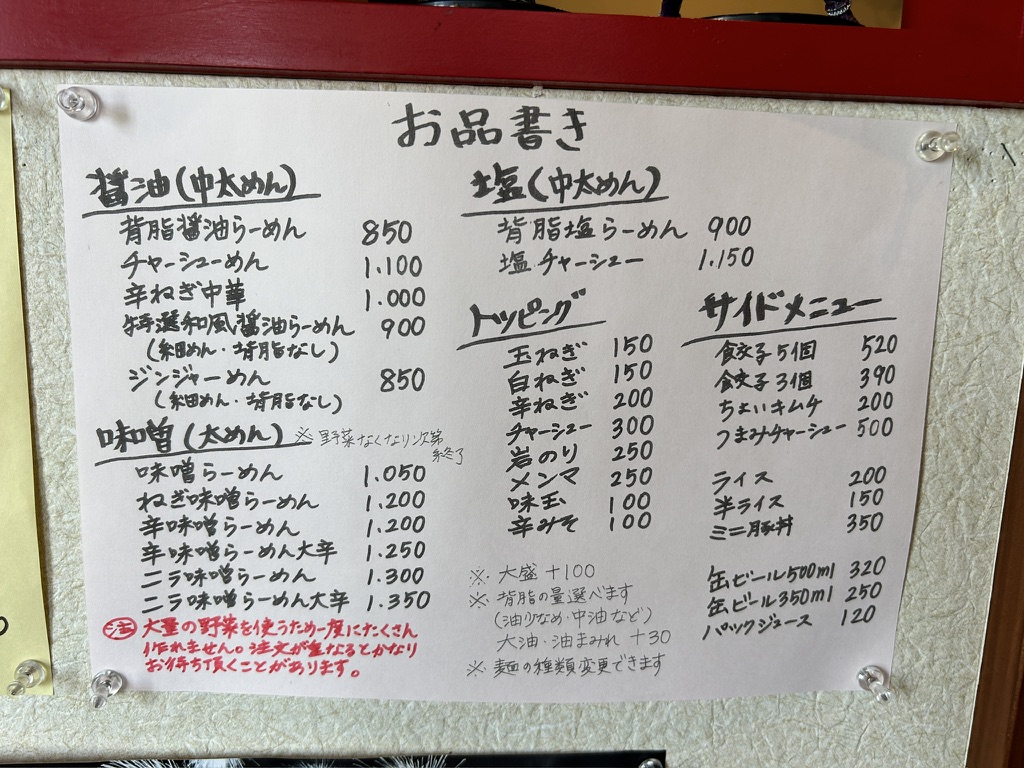 お品書き
醤油(中太めん)
背脂醤油らーめん 850
チャーシューめん 1.100
辛ねぎ中華 1.000
特選和風醤油らーめん 900
(細めん・背脂なし)
ジンジャーめん 850
(細めん・背脂なし)
味噌(太めん) ※野菜なくなり次第
終了
味噌らーめん 1.050
ねぎ味噌らーめん 1.200
辛味噌らーめん 1.200
辛味噌らーめん大辛 1.250
ニラ味噌らーめん 1.300
ニラ味噌らーめん大辛 1.350
注 大量の野菜を使うため一度にたくさん
作れません。注文が重なるとかなり
お待ち頂くことがあります。
塩(中太めん)
背脂塩らーめん 900
塩チャーシュー 1.150
トッピング
玉ねぎ 150
白ねぎ 150
辛ねぎ 200
チャーシュー 300
岩のり 250
メンマ 250
味玉 100
辛みそ 100
※大盛+100
※背脂の量選べます
(油少なめ・中油など)
大油・油まみれ +30
※麺の種類変更できます
サイドメニュー
餃子5個 520
餃子3個 390
ちょいキムチ 200
つまみチャーシュー 500
ライス 200
半ライス 150
ミニ豚丼 350
缶ビール500ml 320
缶ビール350ml 250
パックジュース 120